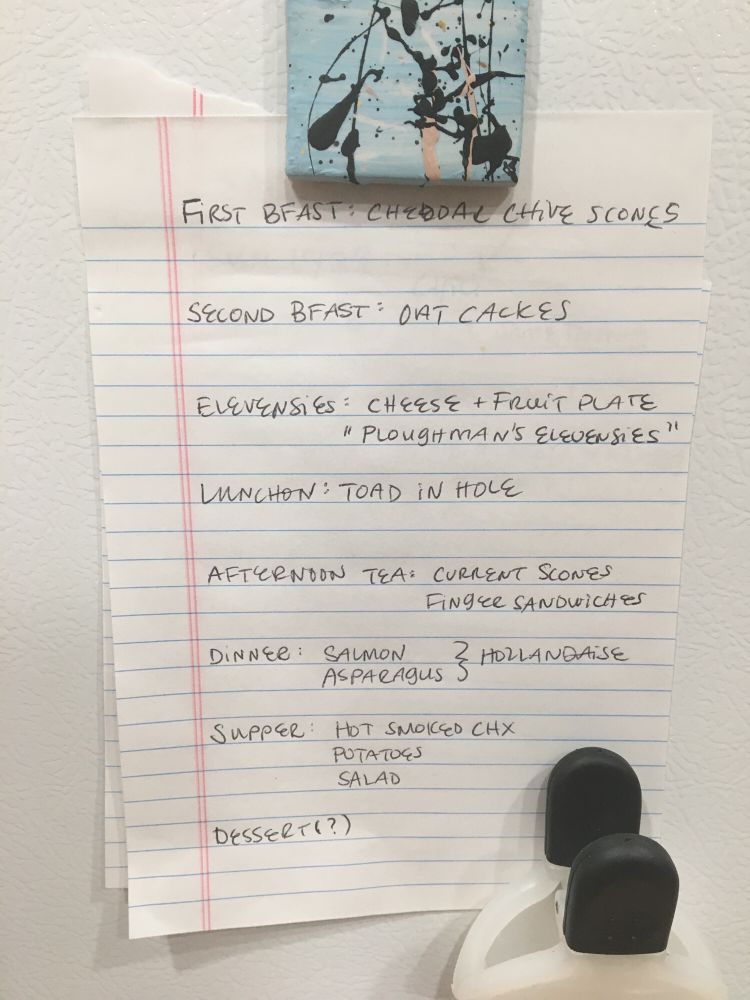 FiRST BFAST: CHEDDAR CHiVE SCONES
SECOND BFAST: OAT CACKES
ELEVENSiES: CHEESE + FRUiT PLATE
"PLOUGHMAN'S ELEVENSiES"
LUNCHON: TOAD iN HOLE
AFTERNOON TEA: CURRENT SCONES
FiNGER SANDWiCHES
DiNNER: SALMON } HOLLANDAiSE
ASPARAGUS
SUPPER: HOT SMOKED CHX
POTATOES
SALAD
DESSERT(?)